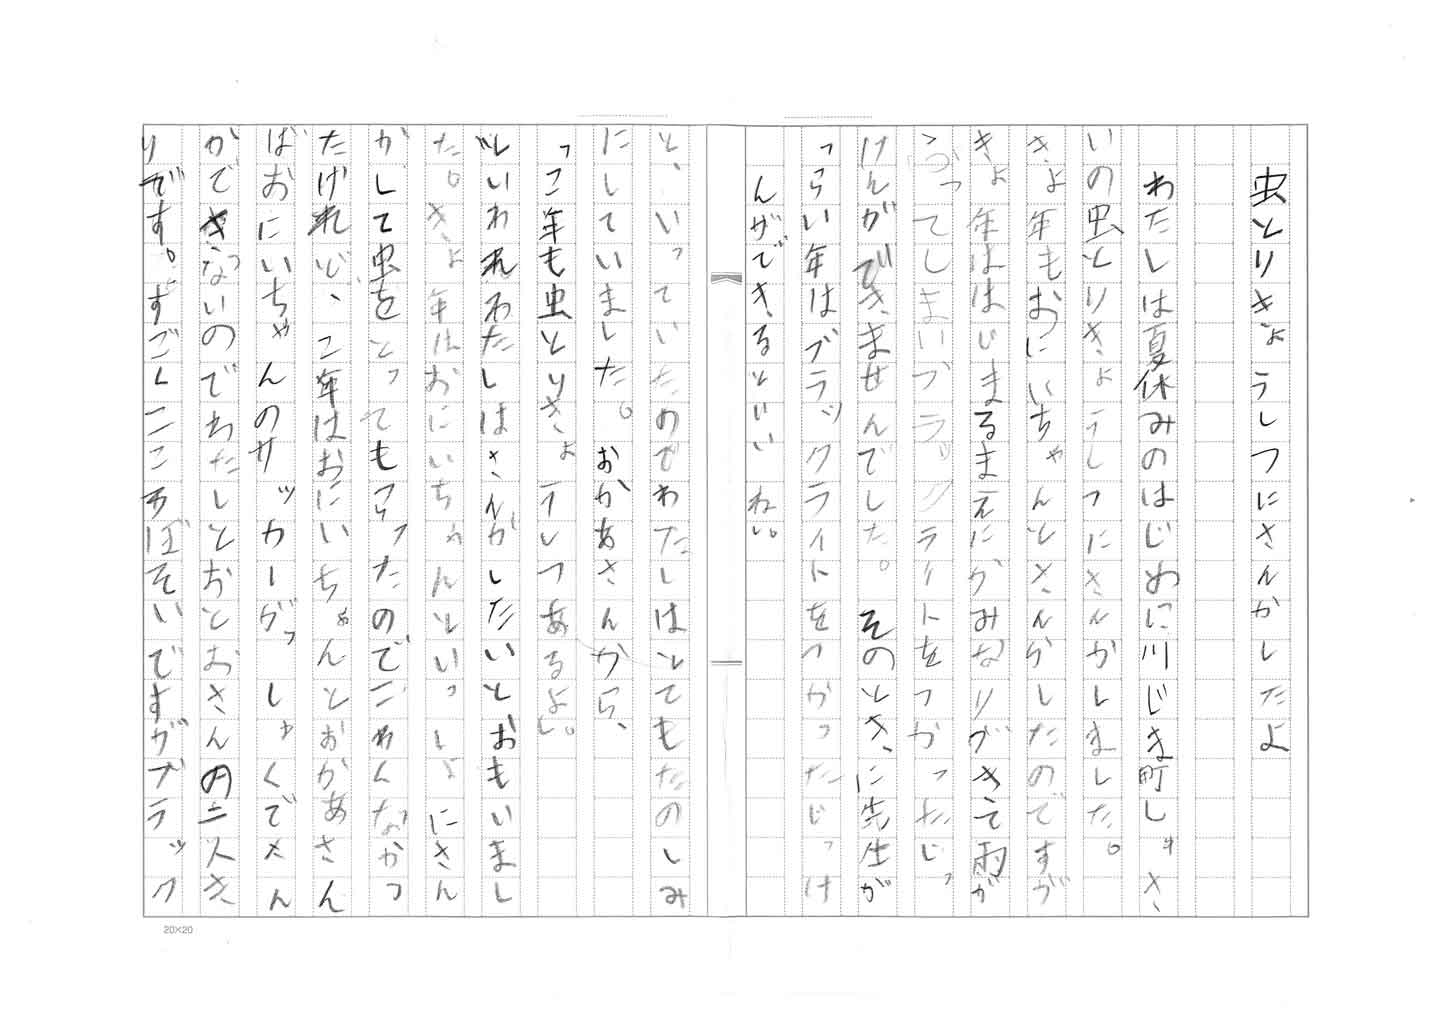 虫とりきょうしつにさんかしたよ
わたしは夏休みのはじめに川じま町しゅさ
いの虫とりきょうしつにさんかしました。
きょ年もおにいちゃんとさんかしたのですが
きょ年ははじまるまえにかみなりがきて雨が
ふってしまいブラックライトをつかったじっ
けんができませんでした。そのとき、に先生が
「らい年はブラックライトをつかったじっけ
んができるといいね。」
と、いっていたのでわたしはとてもたのしみ
にしていました。おかあさんから、
「こ年も虫とりきょうしつあるよ。」
といわれわたしはさんがしたいと、おもいまし
た。きょ年はおにいちゃんといっしょにさん
かして虫をとってもらったのでこわんなかっ
たけれど、こ年はおにいちゃんとおかあさん
ばおにいちゃんのサッカーがっしゅくでさん
かできないのでわたしとおとおさんの二人き
りです。すごくこころぼそいですがブラック
20×20